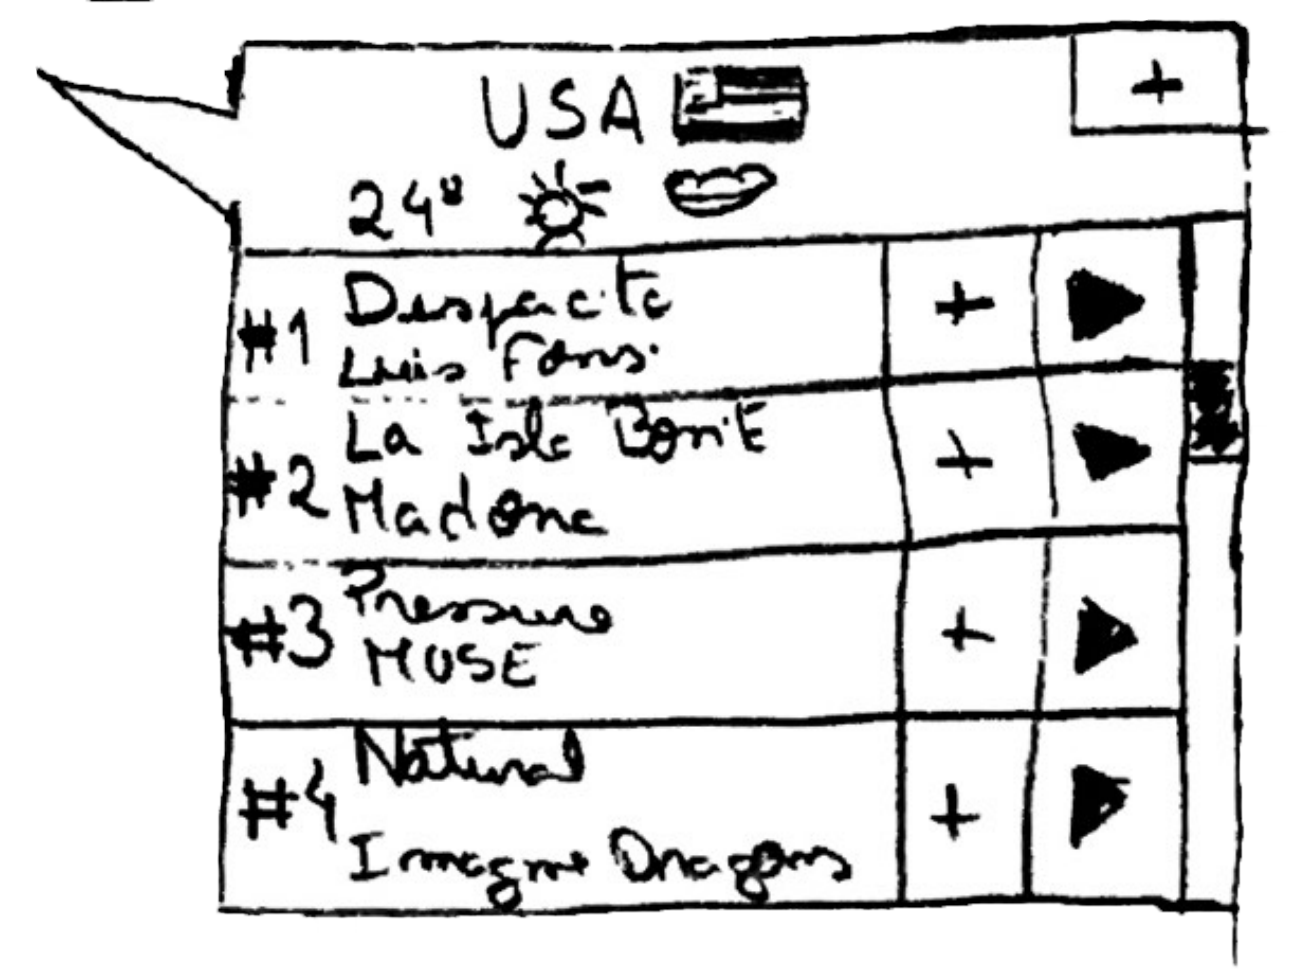 USA
+
24°
#1 Despacito
Luis Fonsi
+
#2 La Isla Bonita
Madona
+
#3 Pressure
MUSE
+
#4 Natural
Imagine Dragons
+